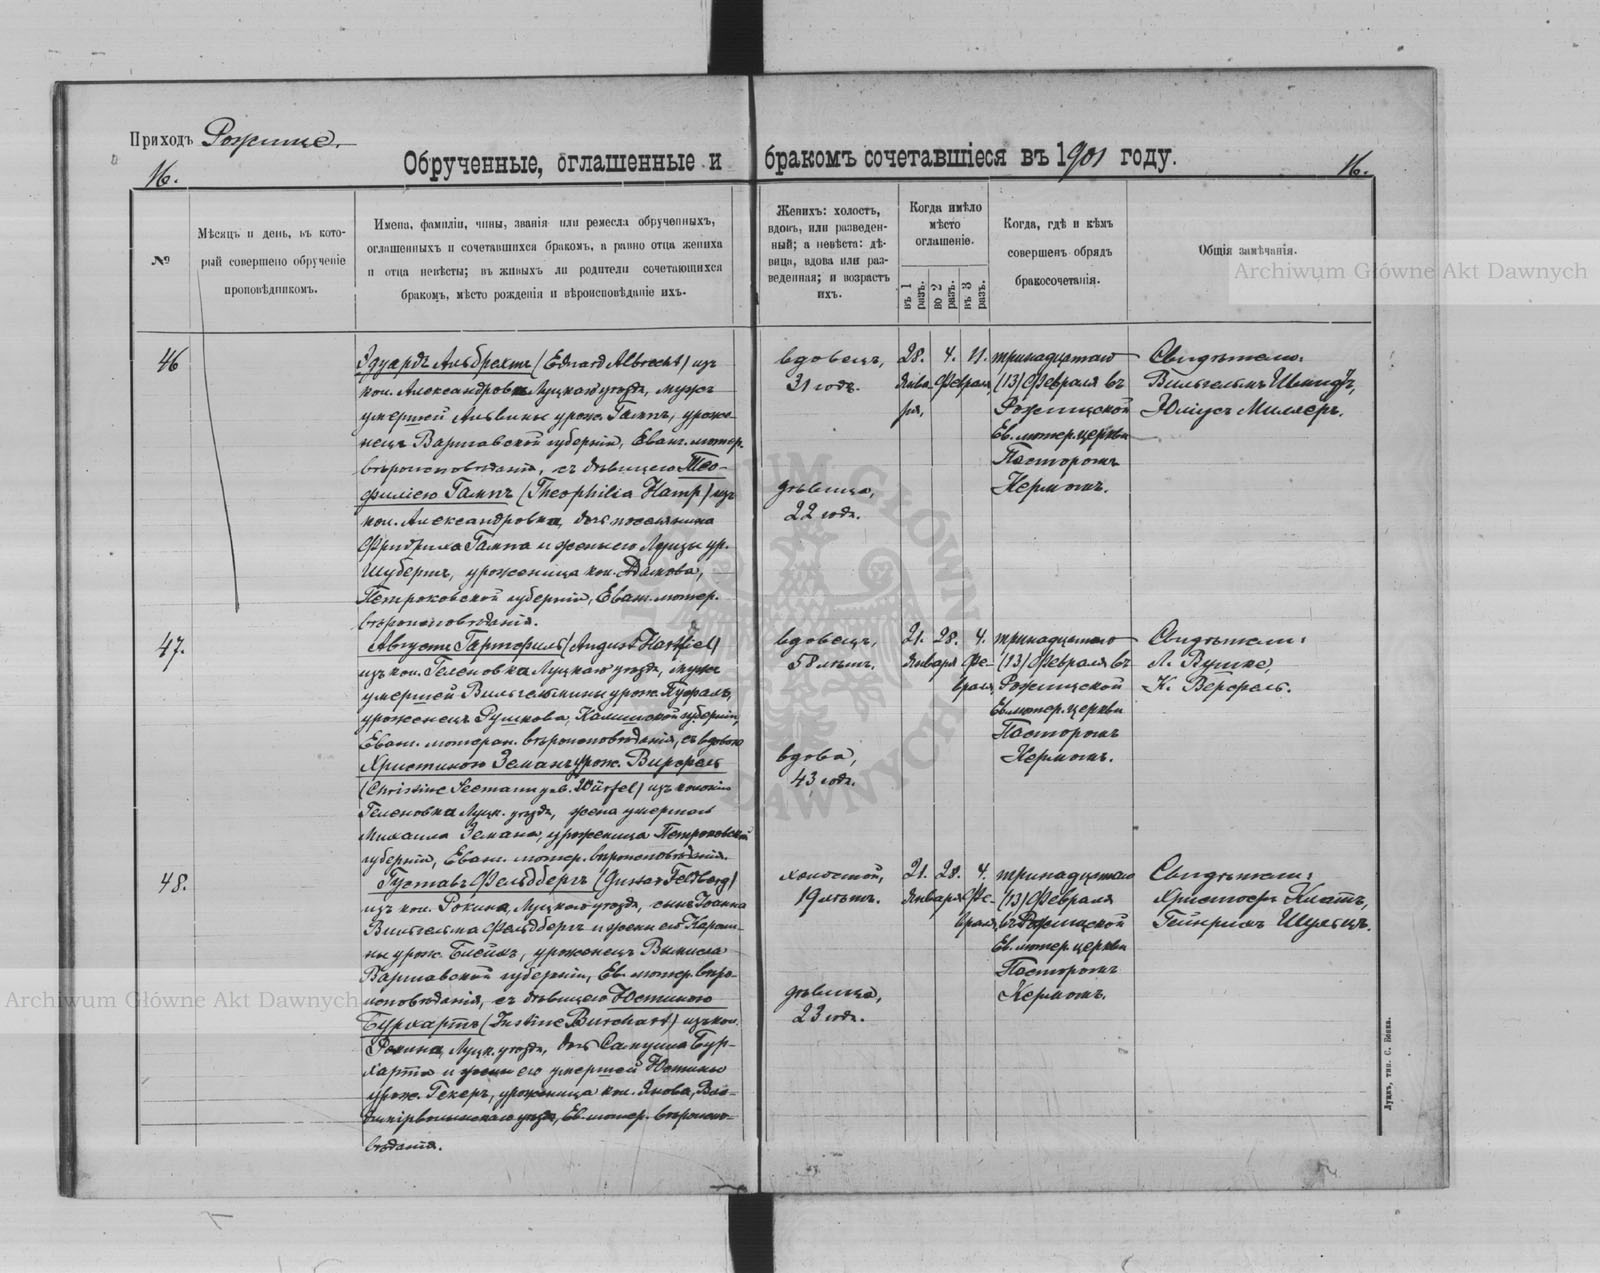 Приходъ Рожище.
Обрученные, оглашенные и бракомъ сочетавшіеся въ 1901 году.
16.
16.
№
Мѣсяцъ и день, въ кото-
рый совершено обрученіе
проповѣдникомъ.
Имена, фамиліи, чины, званія или ремесла обрученныхъ,
оглашенныхъ и сочетавшихся бракомъ, а равно отца жениха
и отца невѣсты; въ живыхъ ли родители сочетающихся
бракомъ, мѣсто рожденія и вѣроисповѣданіе ихъ.
Женихъ: холостъ,
вдовъ, или разведен-
ный; а невѣста: дѣ-
вица, вдова или раз-
веденная; и возрастъ
ихъ.
Когда имѣло
мѣсто
оглашеніе.
въ 1 разъ.
во 2 разъ.
въ 3 разъ.
Когда, гдѣ и кѣмъ
совершенъ обрядъ
бракосочетанія.
Общія замѣчанія.
Archiwum Główne Akt Dawnych
46
Эдуардъ Альбрехтъ (Eduard Albrecht) изъ
кол. Александровка Луцкаго уѣзда, мужъ
умершей Альвины урож. Гампъ, уроже-
нецъ Варшавской губерніи, Еванг. лютер.
вѣроисповѣданія, съ дѣвицею Тео-
филіею Гампъ (Theophilia Hamp) изъ
кол. Александровка, дочь поселянина
Фридриха Гампа и жены его Луизы ур.
Шубертъ, уроженица кол. Адамова,
Петроковской губерніи, Еванг. лютер.
вѣроисповѣданія.
вдовецъ,
31 годъ.
дѣвица,
22 года.
28. 4. 11.
Янва- Февраля,
ря,
тринадцатаго
(13) Февраля въ
Рожищской
Ев. лютер. церкви
Пасторомъ
Кермомъ.
Свидѣтели:
Вильгельмъ Шмидтъ,
Юліусъ Миллеръ.
47.
Августъ Гартфиль (August Hartfiel)
изъ кол. Геленовка Луцкаго уѣзда, мужъ
умершей Вильгельмины урож. Пуфаль,
уроженецъ Рушкова, Калишской губерніи,
Еванг. лютеран. вѣроисповѣданія, съ вдовою
Христиною Земанъ урож. Вирфель
(Christine Seemann geb. Würfel) изъ колоніи
Геленовка Луцк. уѣзда, жена умершаго
Михаила Земана, уроженица Петроковской
губерніи, Еванг. лютер. вѣроисповѣданія.
вдовецъ,
58 лѣтъ.
вдова,
43 года.
21. 28. 4.
Января Фе-
враля,
тринадцатаго
(13) Февраля въ
Рожищской
Ев. лютер. церкви
Пасторомъ
Кермомъ.
Свидѣтели:
Л. Вушке,
К. Верфель.
48.
Густавъ Фельдбергъ (Gustav Feldberg)
изъ кол. Рокина, Луцкаго уѣзда, сынъ Іоанна
Вильгельма Фельдбергъ и жены его Кароли-
ны урож. Блейхъ, уроженецъ
Варшавской губерніи, Ев. лютер. вѣро-
исповѣданія, съ дѣвицею Юстиною
Бурхартъ (Justine Burchart) изъ кол.
Рокина, Луцк. уѣзда, дочь Самуила Бур-
харта и жены его умершей Юстины
урож. Гекеръ, уроженица кол. Янова, Вла-
димірволынскаго уѣзда, Ев. лютер. вѣроиспо-
вѣданія.
холостой,
19 лѣтъ.
дѣвица,
23 года.
21. 28. 4.
Января Фе-
враля,
тринадцатаго
(13) Февраля
въ Рожищской
Ев. лютер. церкви
Пасторомъ
Кермомъ.
Свидѣтели:
Христофъ Клаттъ,
Гейнрихъ Шульцъ.
Archiwum Główne Akt Dawnych
Луцкъ, тип. С. Бокса.